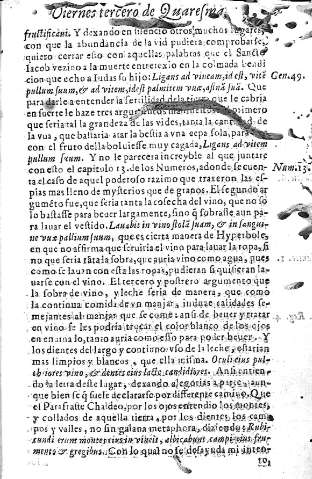 Viernes tercero de Quaresma.
fructificãni. Y dexando en silencio otros muchos lugares,
con que la abundancia de la vid pudiera comprobarse,
quiero cerar esto con aquellas palabras que el Sancto
Iacob vezino a la muerte entretexio en la colmada bendi
cion que echo a Iudas su hijo: Ligans ad vineam, id est, vitẽ
Gen. 49.
pullum suum, & ad vitem, id est palmitem vuæ, asinã suã. Que
para darle a entender la fertilidad de la tierra que le cabria
en suerte le haze tres argumentos
primero
que seria tal la grandeza de las vides, tanta la cantidad de
la vua, que bastaria atar la bestia a vna cepa sola, para
con el fruto della boluiesse muy cagada, Ligans ad vitem
pullum suum. Y no le parecera increyble al que juntare
con esto el capitulo 13. de los Numeros, donde se cuen-
Num. 13.
ta el caso de aquel poderoso razimo que traxeron las es-
pias mas lleno de mysterios que de granos. El segundo ar
gumẽto fue, que seria tanta la cosecha del vino, que no so
lo bastasse para beuer largamente, sino q̃ sobrasse aun pa-
ra lauar el vestido. Lauabit in vino stolã suam, & in sangui-
ne vuæ pallium suum, que es cierta manera de Hyperbole,
en que no affirma que seruiria el vino para lauar la ropa, si
no que seria tãta la sobra, que auria vino como agua, pues
como se lauan con esta las ropas, pudieran si quisieran la-
uarse con vino. El tercero y postrero argumento que
la sobre de vino, y leche seria de manera, que como
la continua comida de vn manjar, induze calidades se-
mejantes al manjar que se come: ansi de beuer y tratar
en vino se les podria trocar el color blanco de los ojos
en
tanto auria como esso para poder beuer. Y
los dientes del largo y continuo vso de la leche, estarian
mas limpios y blancos, que ella misma. Oculi eius pul-
chriores vino, & dentes eius lacte candidiores. Ansi entien
do la letra deste lugar, dexando alegorias a parte: aun-
que bien se q̃ suele declararse por differente camino. Que
el Parafraste Chaldeo, por los ojos entendio los montes,
y collados de aquella tierra, por los dientes los cam
pos y valles, no sin galana metaphora, diziendo: Rubi-
cundi erunt montes eius in vineis, albicabunt campi eius fru-
mento & gregibus. Con lo qual no se desayuda mi inten-
to,